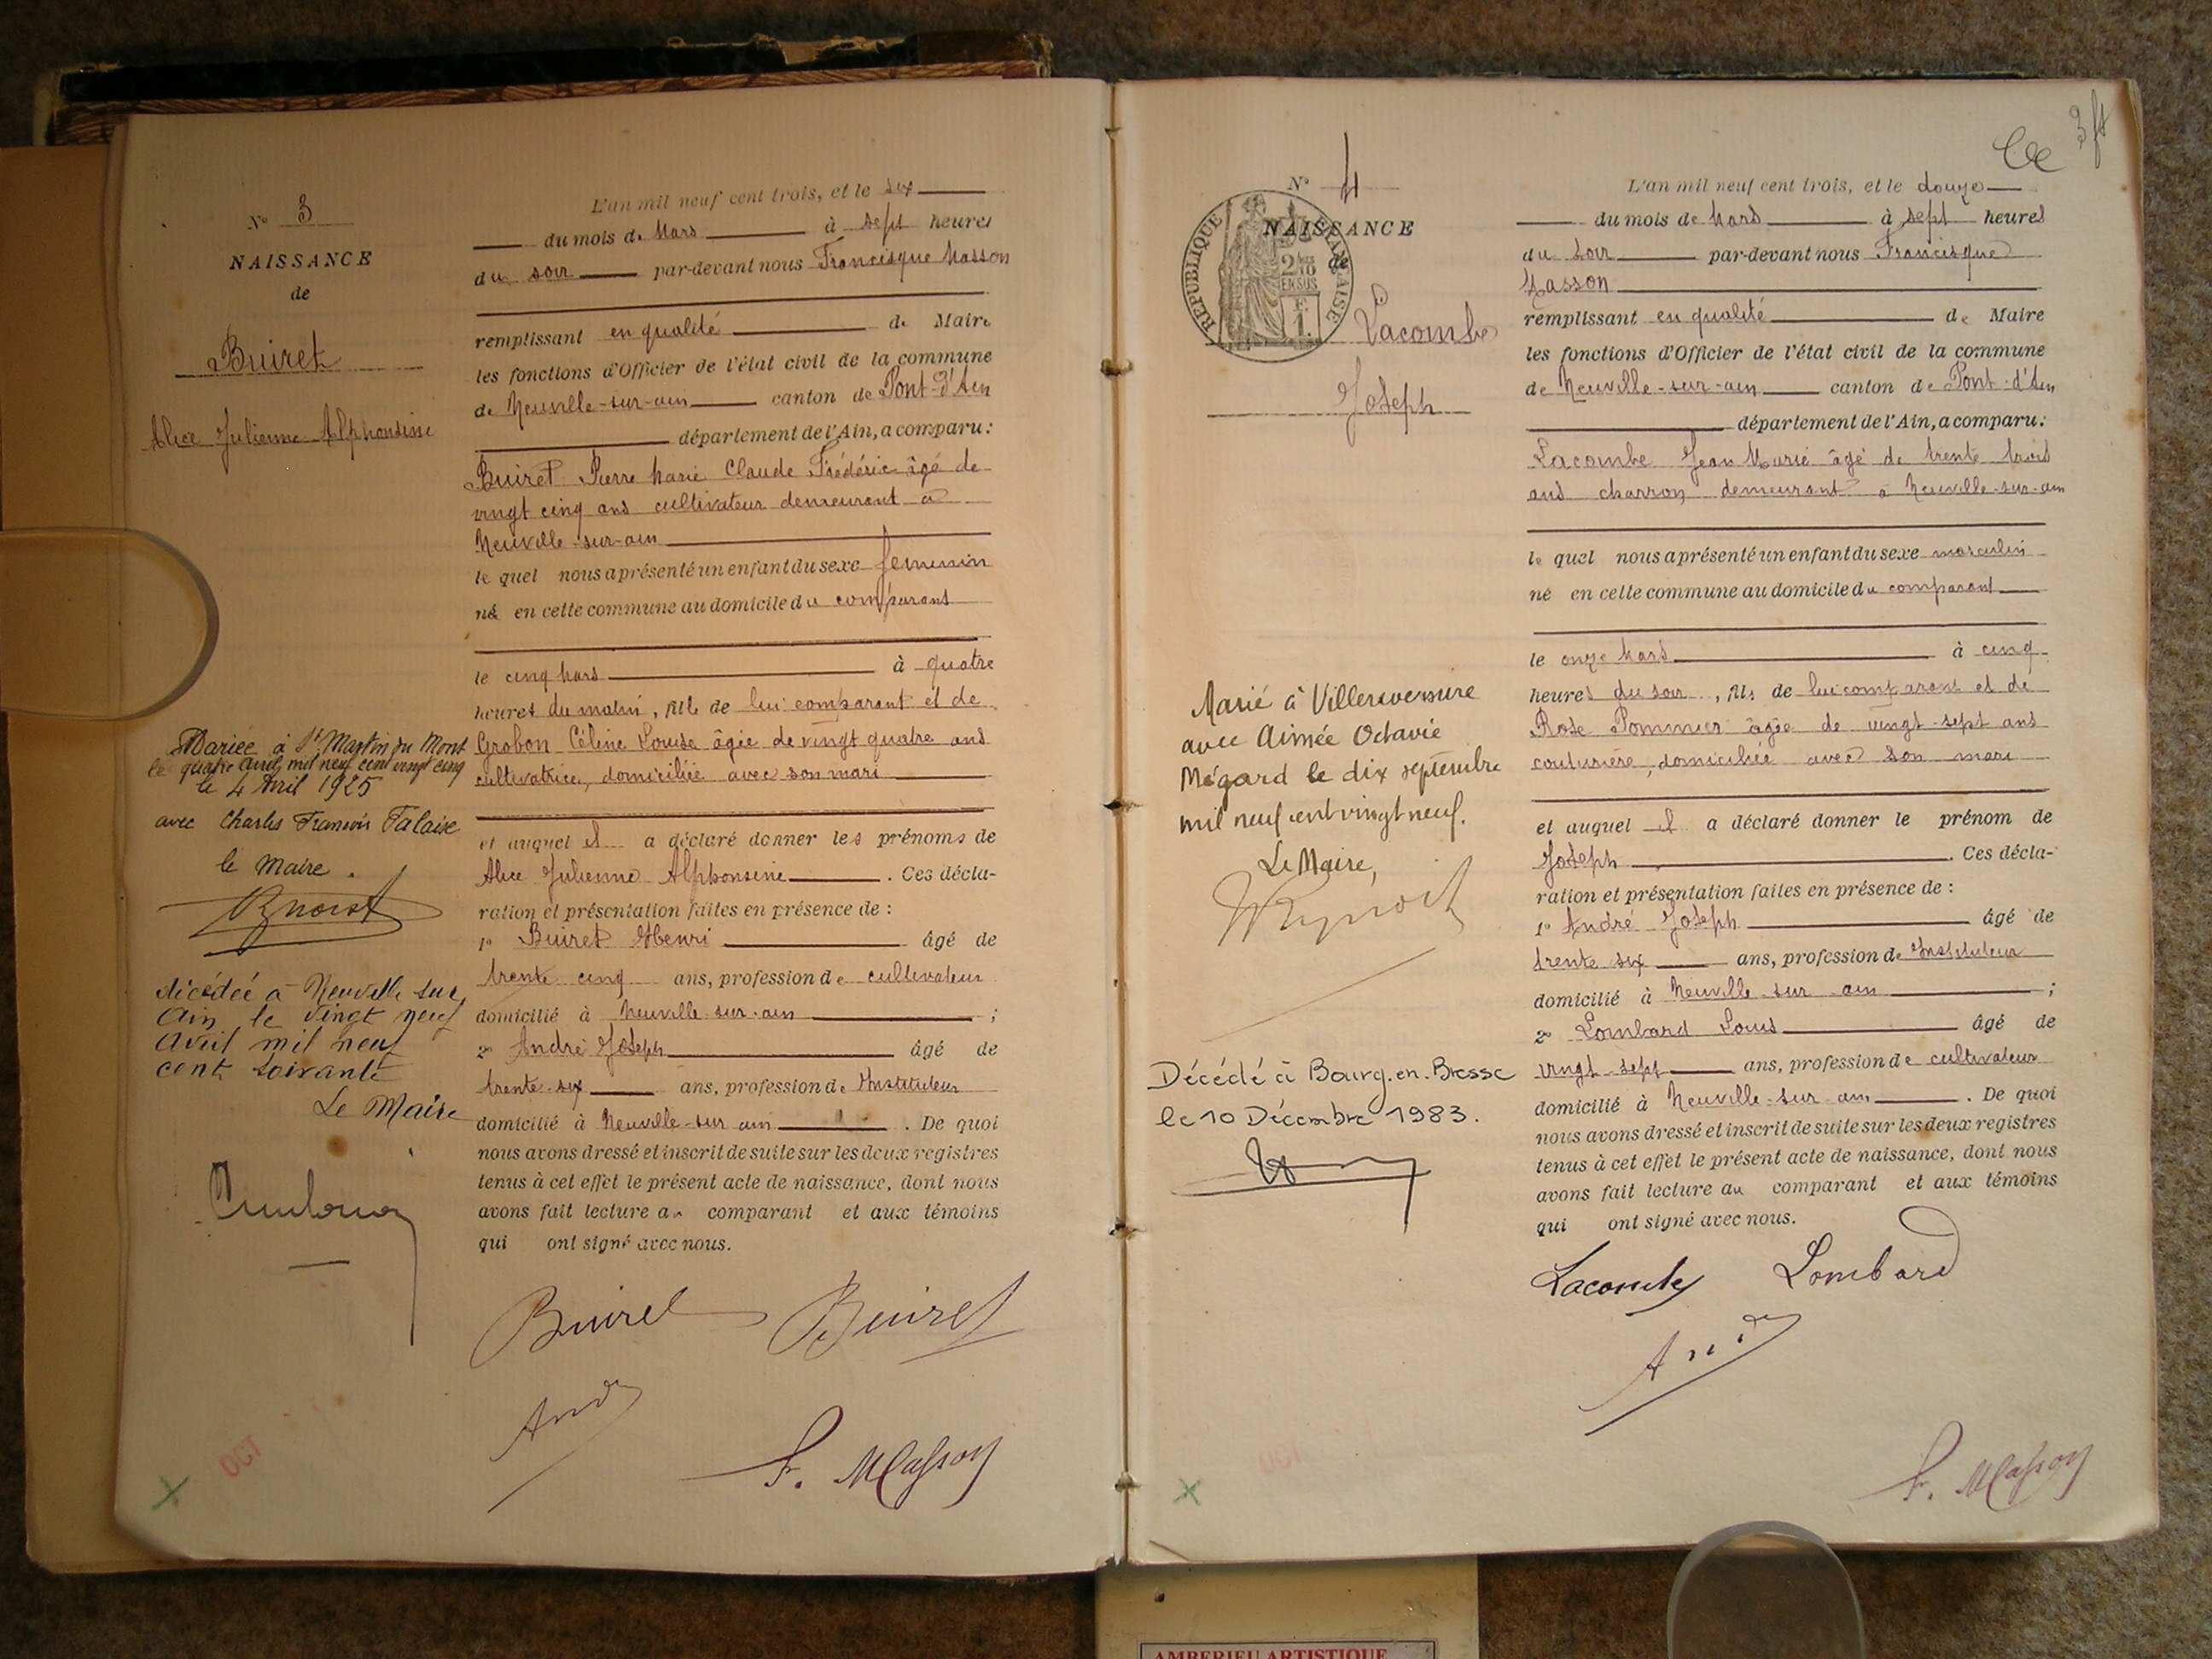 N° 3
NAISSANCE
de
Buiret
Alice Julienne Alphonsine
Mariée à St Martin du Mont
le quatre avril mil neuf cent vingt cinq
le 4 Avril 1925
avec Charles François Falaise
le Maire.
décédée à Neuville sur
Ain le vingt neuf
avril mil neuf
cent soixante
Le Maire
L'an mil neuf cent trois, et le six
du mois de Mars à sept heures
du soir par-devant nous Francisque Masson
remplissant en qualité de Maire
les fonctions d'Officier de l'état civil de la commune
de Neuville-sur-ain canton de Pont-d'Ain
département de l'Ain, a comparu:
Buiret Pierre Marie Claude Frédéric âgé de
vingt cinq ans cultivateur demeurant à
Neuville-sur-ain
le quel nous a présenté un enfant du sexe feminin
né en cette commune au domicile du comparant
le cinq Mars à quatre
heures du matin, fille de lui comparant et de
Grobon Céline Louise âgée de vingt quatre ans
cultivatrice, domiciliée avec son mari
et auquel il a déclaré donner les prénoms de
Alice Julienne Alphonsine. Ces décla-
ration et présentation faites en présence de :
1° Buiret Henri âgé de
trente cinq ans, profession de cultivateur
domicilié à Neuville-sur-ain ;
2° André Joseph âgé de
trente-six ans, profession de Instituteur
domicilié à Neuville-sur ain. De quoi
nous avons dressé et inscrit de suite sur les deux registres
tenus à cet effet le présent acte de naissance, dont nous
avons fait lecture au comparant et aux témoins
qui ont signé avec nous.
Buiret Buiret
And
F. Masson
OCT
3 ft
N° 4
NAISSANCE
de
REPUBLIQUE FRANCAISE
2/10
EN SUS
Lacombe
Joseph
Marié à Villereversure
avec Aimée Octavie
Mégard le dix septembre
mil neuf cent vingt neuf.
Le Maire,
Décédé à Bourg.en.Bresse
le 10 Décembre 1983.
L'an mil neuf cent trois, et le douze
du mois de Mars à sept heures
du soir par-devant nous Francisque
Masson
remplissant en qualité de Maire
les fonctions d'Officier de l'état civil de la commune
de Neuville-sur-ain canton de Pont-d'Ain
département de l'Ain, a comparu:
Lacombe Jean Marie âgé de trente trois
ans charron demeurant à Neuville-sur-ain
le quel nous a présenté un enfant du sexe masculin
né en cette commune au domicile du comparant
le onze Mars à cinq
heures du soir, fils de lui comparant et de
Rose Pommier âgée de vingt-sept ans
couturière, domiciliée avec son mari
et auquel il a déclaré donner le prénom de
Joseph. Ces décla-
ration et présentation faites en présence de :
1° André Joseph âgé de
trente six ans, profession de Instituteur
domicilié à Neuville sur ain ;
2° Lombard Louis âgé de
vingt-sept ans, profession de cultivateur
domicilié à Neuville-sur ain. De quoi
nous avons dressé et inscrit de suite sur les deux registres
tenus à cet effet le présent acte de naissance, dont nous
avons fait lecture au comparant et aux témoins
qui ont signé avec nous.
Lacombe Lombard
F. Masson
OCT
AMBERIEU ARTISTIQUE